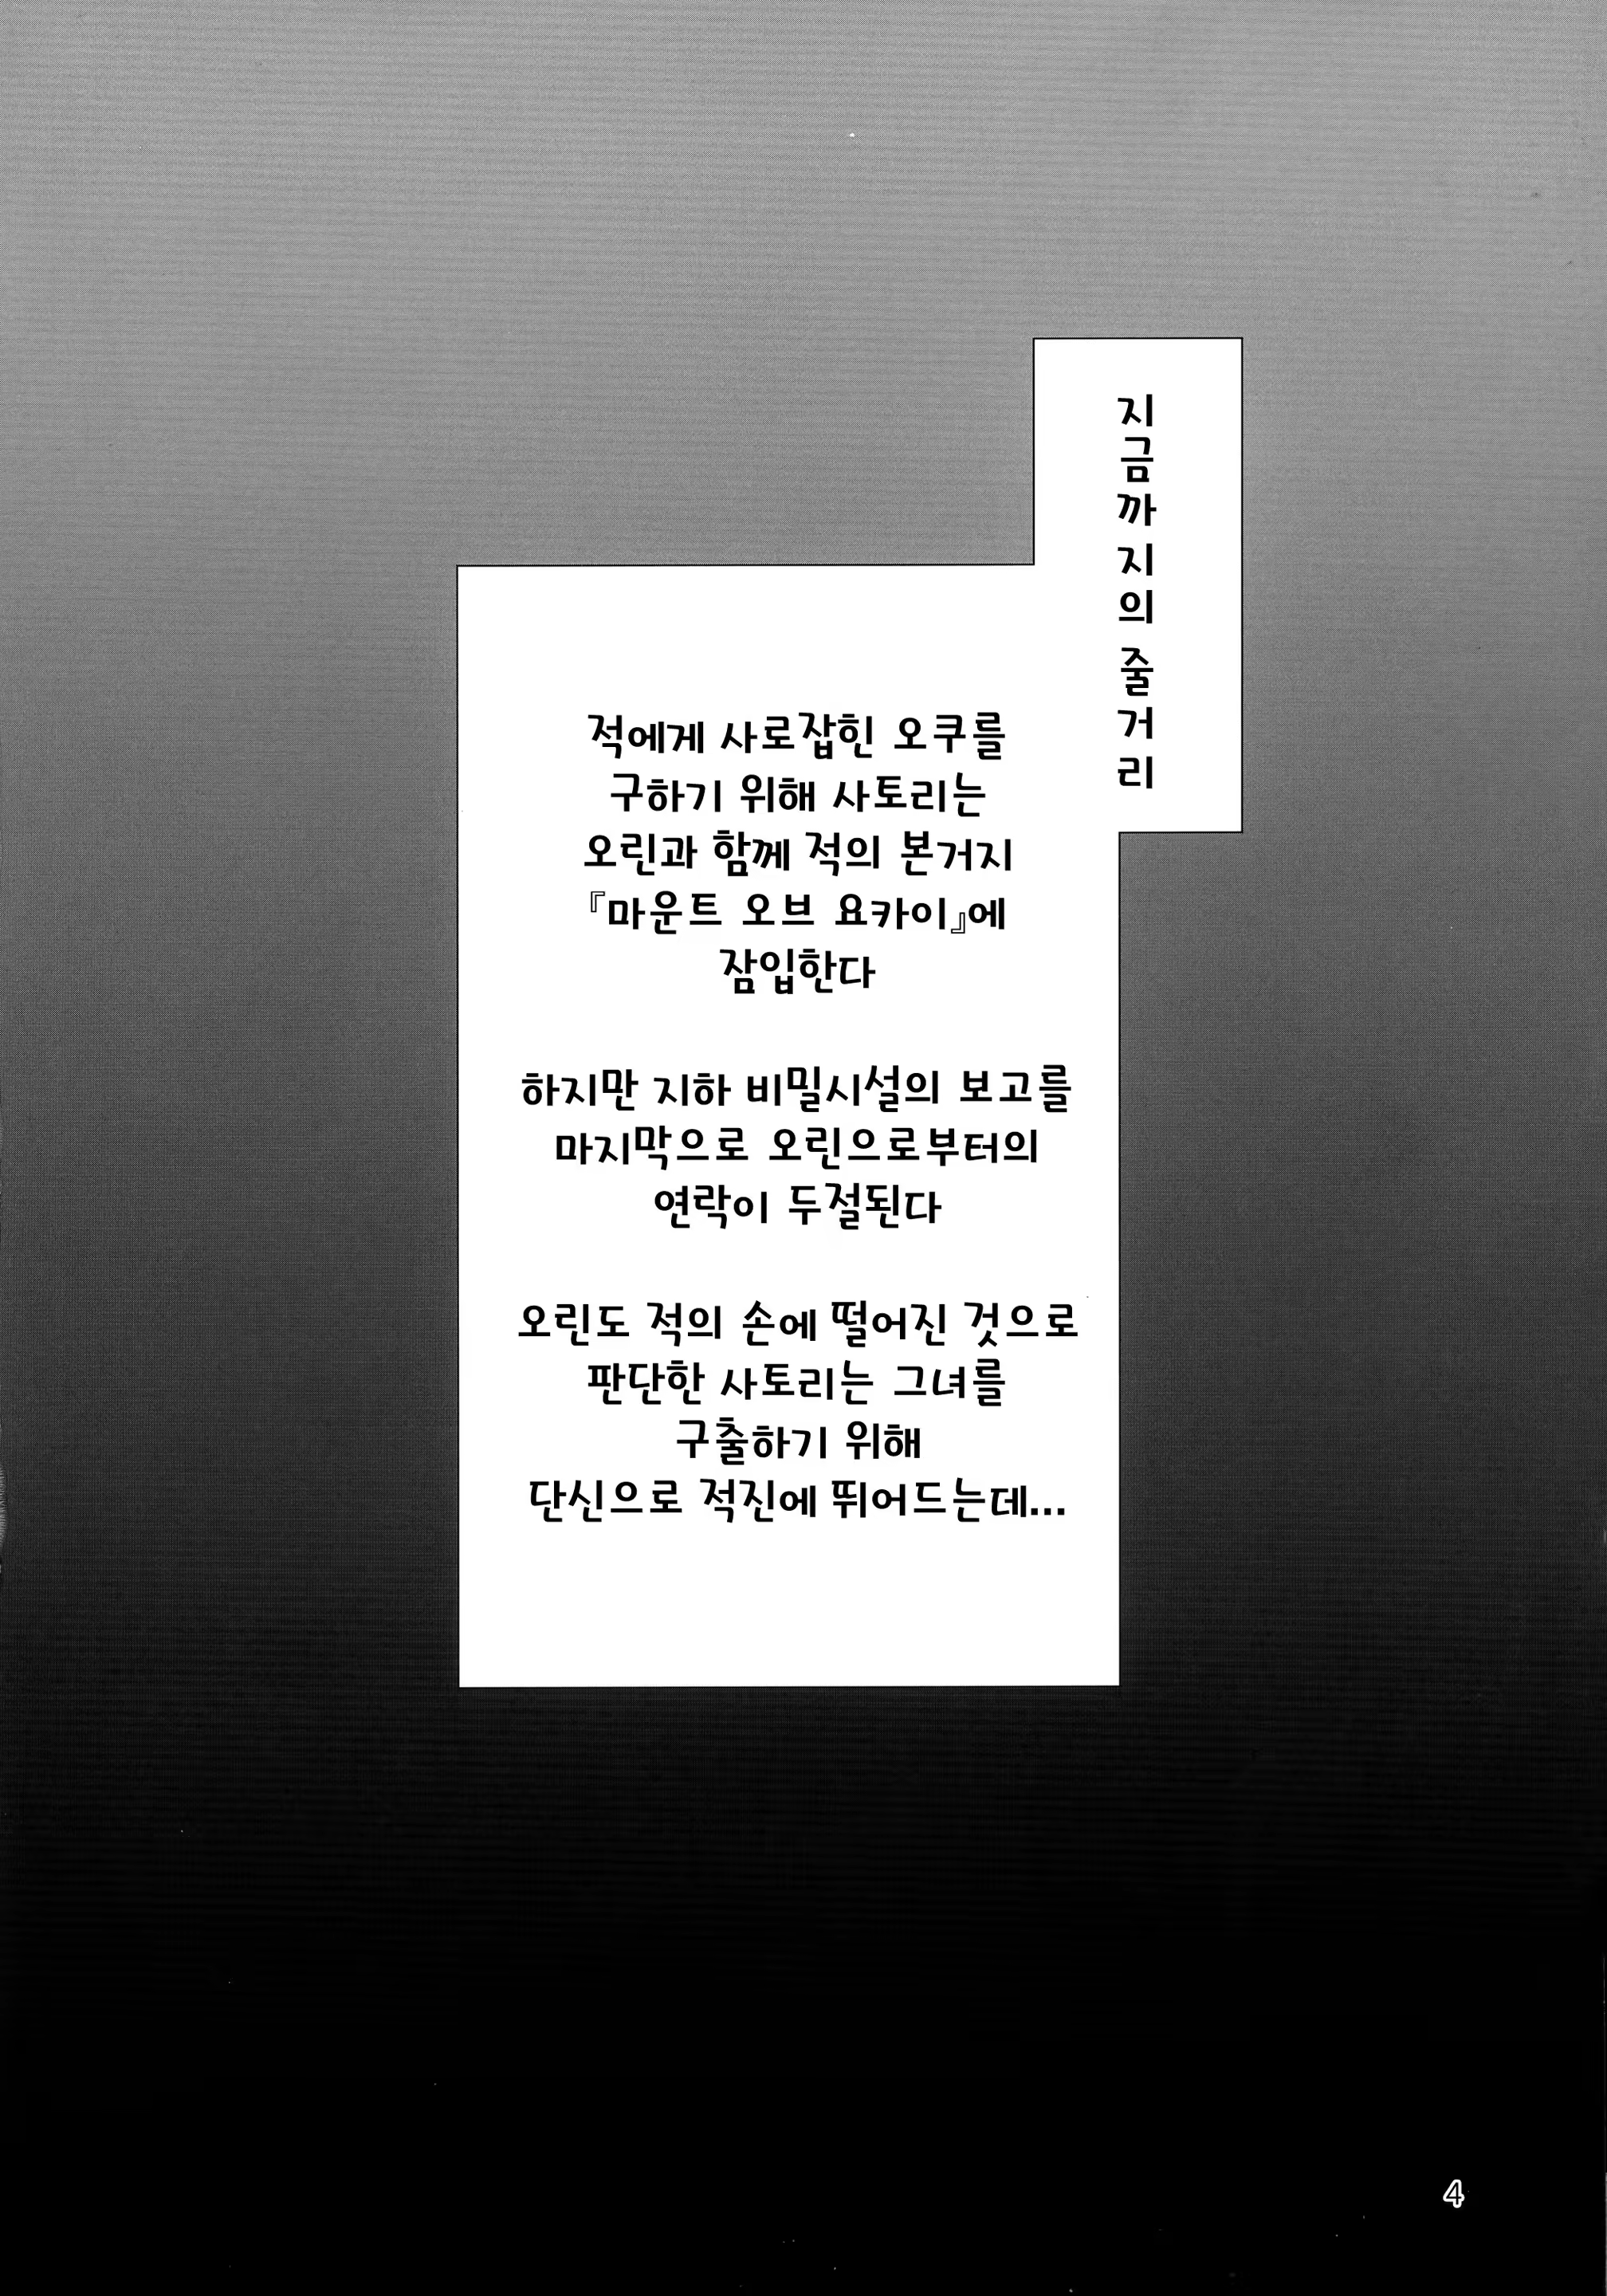 지금까지의 줄거리
적에게 사로잡힌 오쿠를
구하기 위해 사토리는
오린과 함께 적의 본거지
『마운트 오브 요카이』에
잠입한다
하지만 지하 비밀시설의 보고를
마지막으로 오린으로부터의
연락이 두절된다
오린도 적의 손에 떨어진 것으로
판단한 사토리는 그녀를
구출하기 위해
단신으로 적진에 뛰어드는데...
4